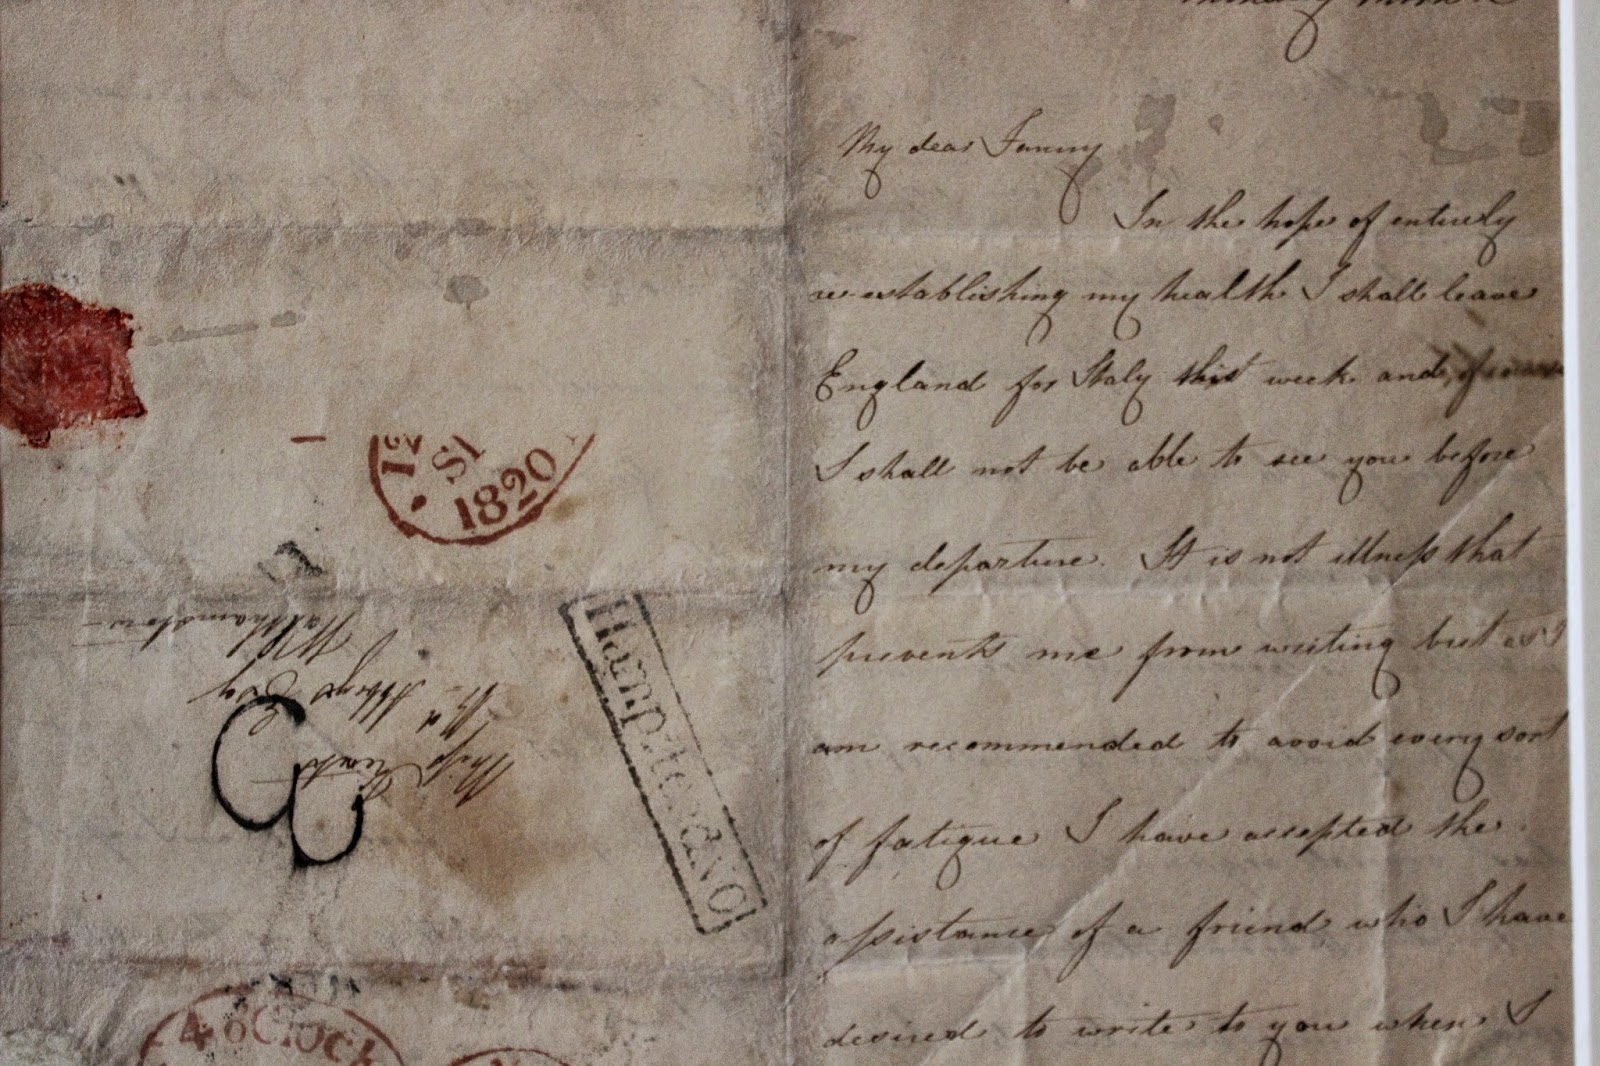 12
S1
1820
Miss Keats
Rd Abbeys Esq
Walthamstow
Hampstead NO
4 o'Clock
Monday Morn
My dear Fanny
In the hope of entirely
re-establishing my health I shall leave
England for Italy this week and, of course
I shall not be able to see you before
my departure. It is not illness that
prevents me from writing but as I
am recommended to avoid every sort
of fatigue I have accepted the
assistance of a friend who I have
desired to write to you when I